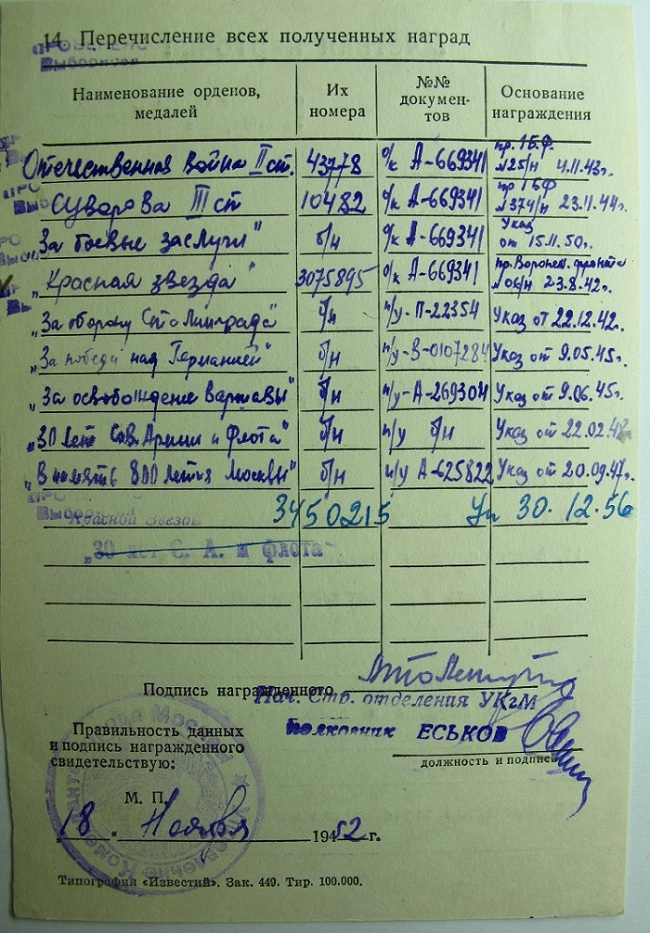 14. Перечисление всех полученных наград
Наименование орденов, медалей
Их номера
№№ докумен-тов
Основание награждения
Отечественная война II ст. 43778 о/к А-669341 пр. 1БФ №25/н 4.11.43г.
Суворова III ст 10482 о/к А-669341 пр 1БФ №374/н 23.11.44г.
За боевые заслуги" б/н о/к А-669341 Указ от 15.11.50г.
„Красная звезда" 3075895 о/к А-669341 пр. Воронеж. фронта 23.8.42г.
„За оборону Сталинграда" б/н п/у-П-22354 Указ от 22.12.42.
„За победу над Германией" б/н п/у-В-0107284 Указ от 9.05.45г.
„За освобождение Варшавы" б/н п/у-А-269304 Указ от 9.06.45г.
„30 лет Сов. Армии и Флота" б/н п/у б/н Указ от 22.02.48
„В память 800 летия Москвы" б/н п/у А-625822 Указ от 20.09.47г.
Красной Звезды 3450215 Ук 30.12.56
„30 лет С. А. и флота"
Подпись награжденного
Нач. Стр. отделения УКгМ
Полковник ЕСЬКОВ
должность и подпись
Правильность данных
и подпись награжденного
свидетельствую:
М. П.
„18" Ноября 1952 г.
Типография «Известий». Зак. 449. Тир. 100.000.